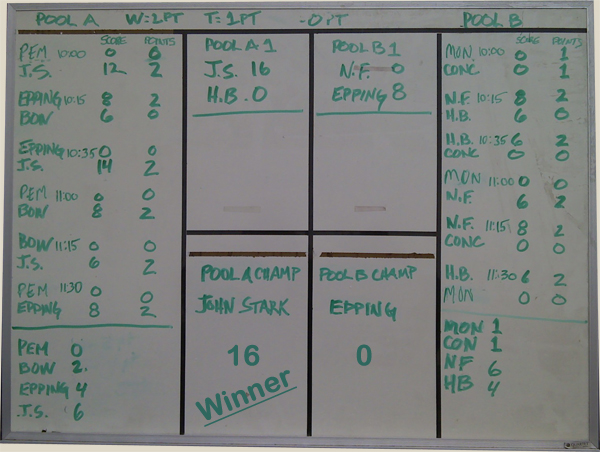 POOL A W=2PT T=1PT -OPT POOL B
SCORE POINTS
PEM 10:00 0 0
J.S. 12 2
EPPING 10:15 8 2
BOW 6 0
EPPING 10:35 0 0
J.S. 14 2
PEM 11:00 0 0
BOW 8 2
BOW 11:15 0 0
J.S. 6 2
PEM 11:30 0 0
EPPING 8 2
PEM 0
BOW 2
EPPING 4
J.S. 6
POOL A 1
J.S. 16
H.B. 0
POOL B 1
N.F. 0
EPPING 8
POOL A CHAMP
JOHN STARK
16
Winner
POOL B CHAMP
EPPING
0
SCORE POINTS
MON 10:00 0 1
CONC 0 1
N.F. 10:15 8 2
H.B. 6 0
H.B. 10:35 6 2
CONC 0 0
MON 11:00 0 0
N.F. 6 2
N.F. 11:15 8 2
CONC 0 0
H.B. 11:30 6 2
MON 0 0
MON 1
CON 1
NF 6
HB 4